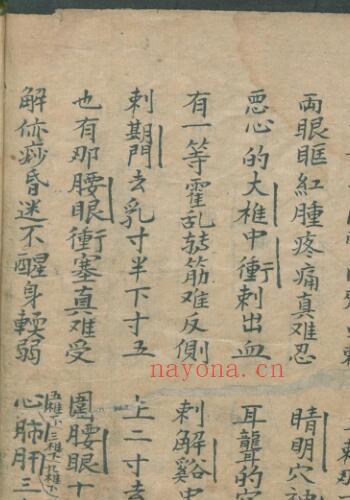 兩眼眶紅腫疼痛真难忍
睛明穴
悪心的大椎中衝刺出血
耳聾的
有一等霍乱转筋难反側
刺解谿中
刺期門去乳寸半下寸五
上二寸去
也有那腰眼衝塞真难受
圍腰眼十
解㑊痧昏迷不醒身輭弱
心肺肝三
nayona.cn